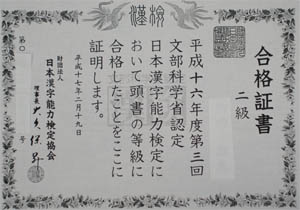 漢検
合格証書
二級
平成十六年度第三回
文部科学省認定
日本漢字能力検定に
おいて頭書の等級に
合格したことをここに
証明します。
平成十七年二月十九日
財団法人
日本漢字能力検定協会
理事長
第〇
号